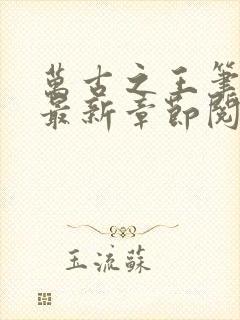 萬古之王筆
最新章節閱
玉流蘇